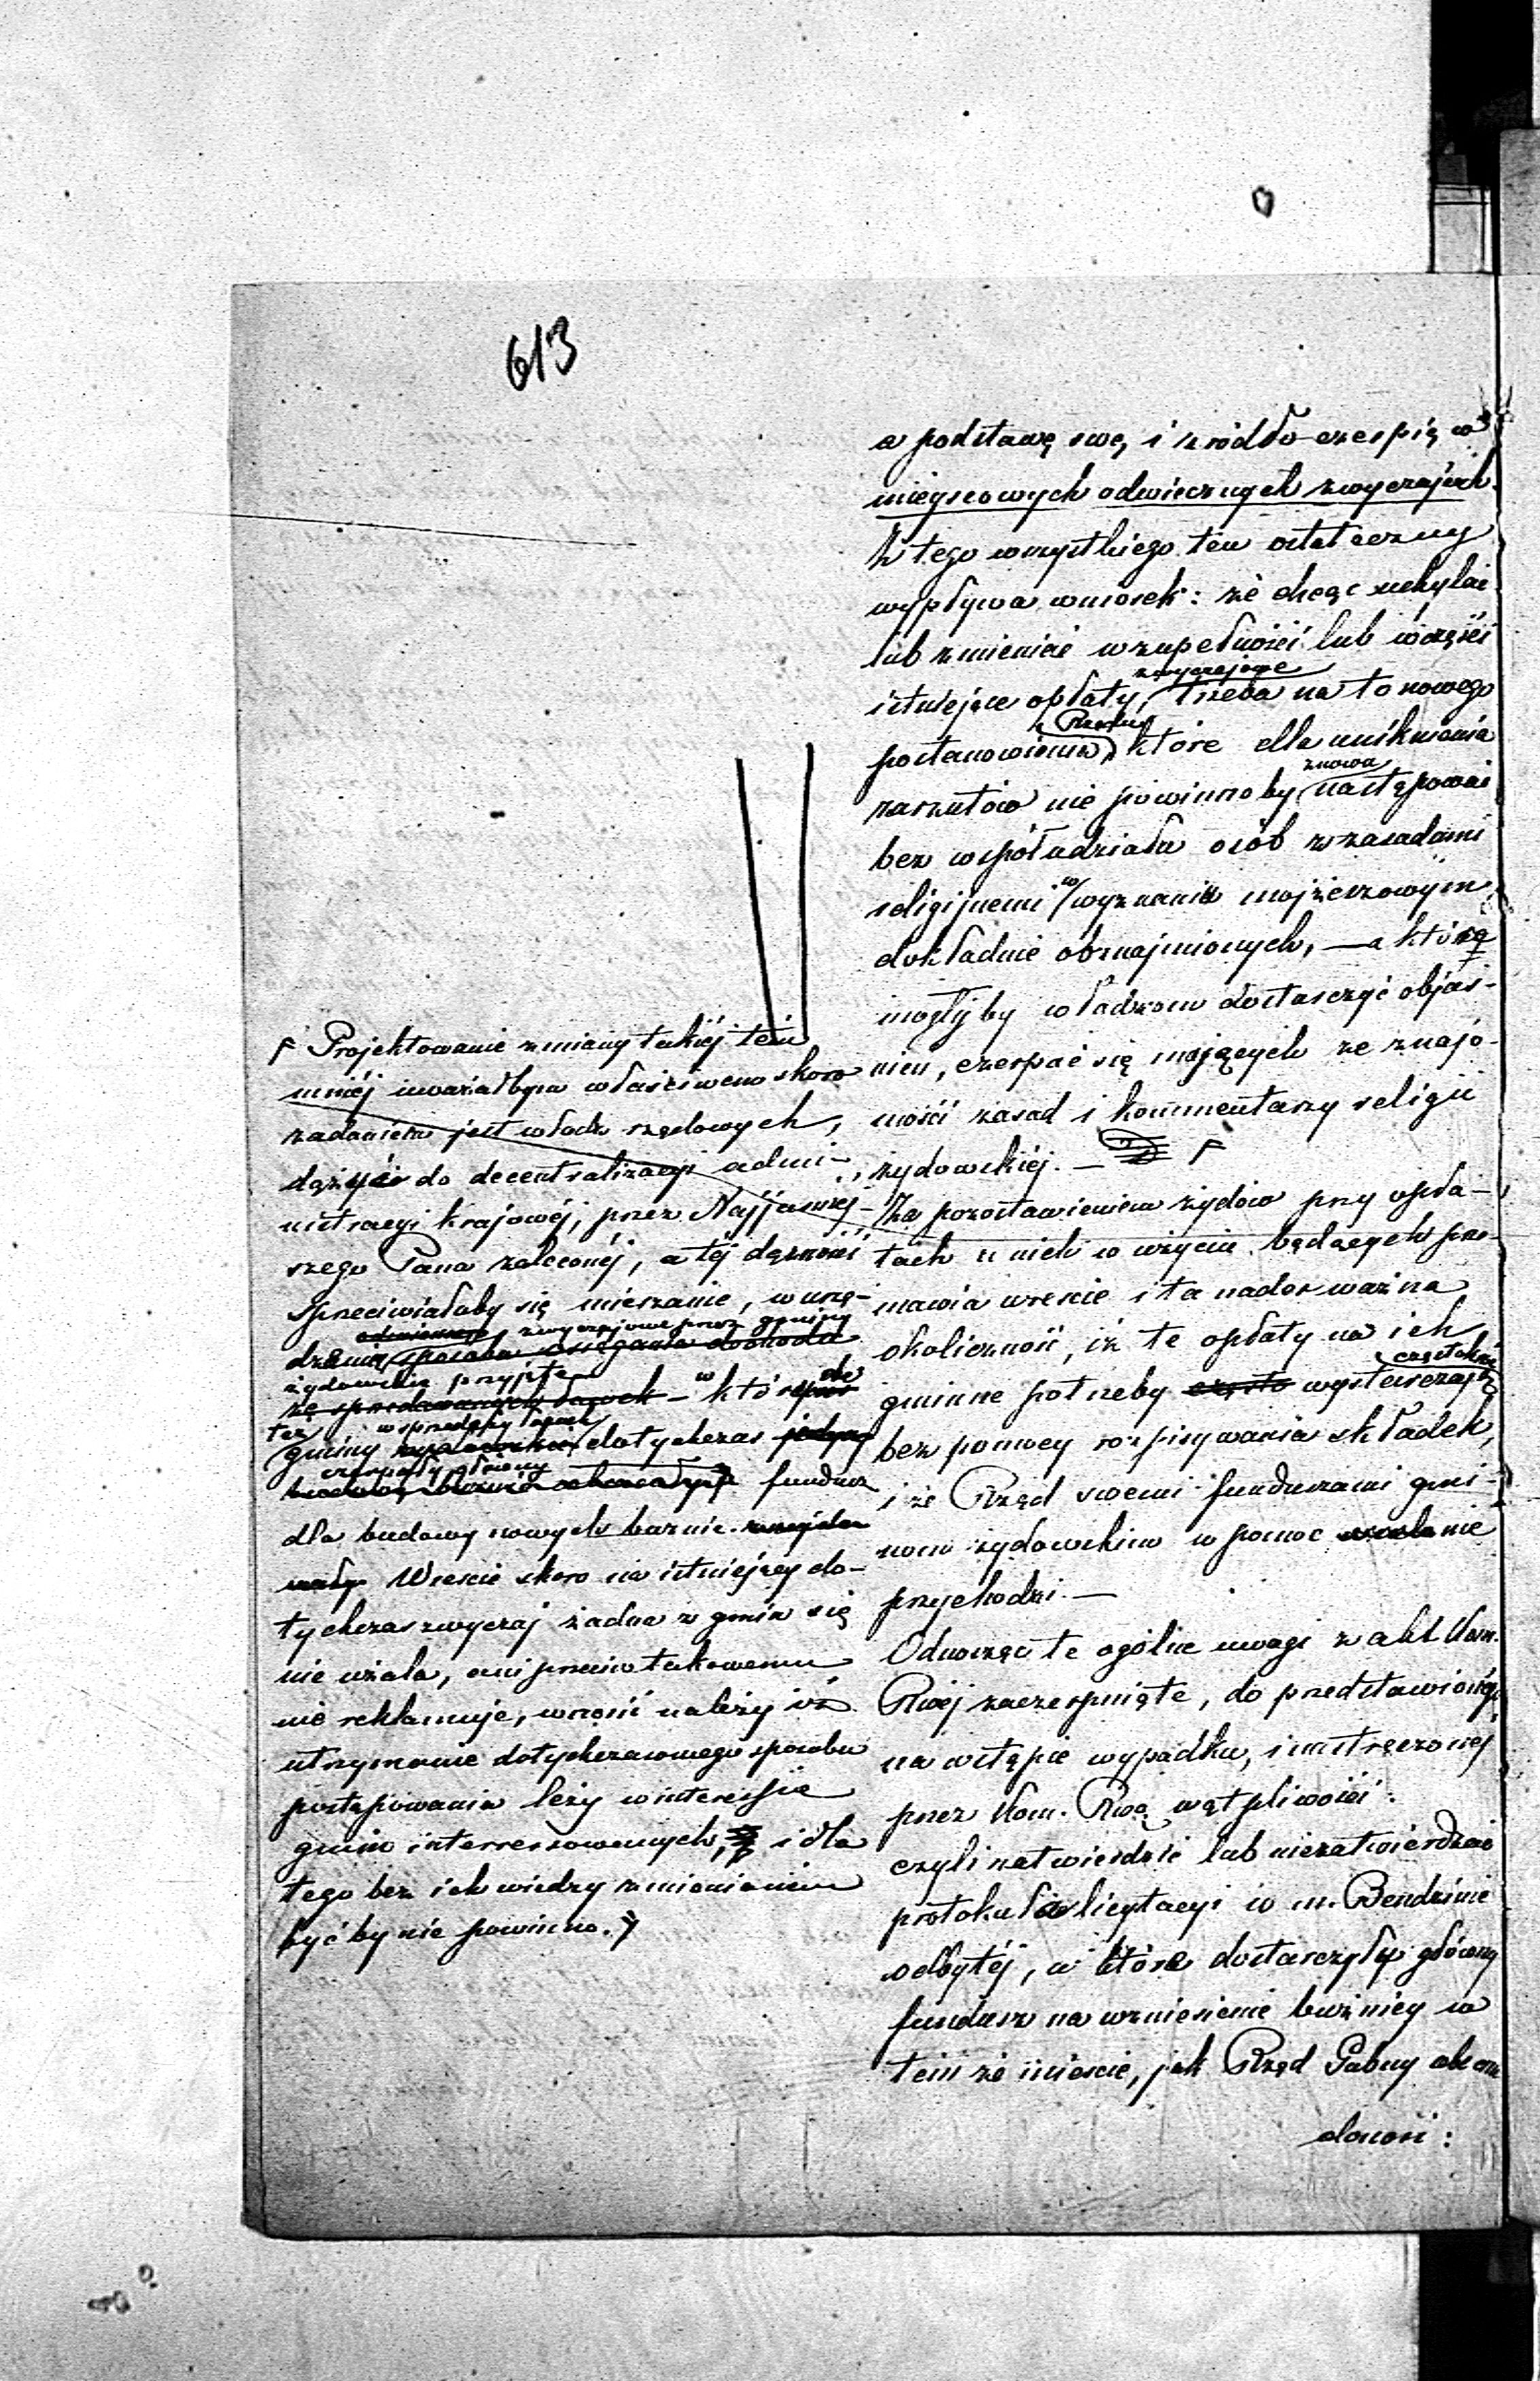 613
a podstawę swą i źródło czerpią w
miejscowych odwiecznych zwyczajach.
Z tego wszystkiego ten ostateczny
wypływa wniosek: że chcąc uchylać
lub zmieniać w zupełności lub w części
zwyczajowe
istniejące opłaty, trzeba na to nowego
Rządu
postanowienia, które dla uniknienia
znowu
zarzutów nie powinno by następować
bez współudziału osób z zasadami
religijnemi w wyznaniu mojżeszowym
dokładnie obznajmionych, — a które
mogły by władzom dostarczyć objaś-
nień, czerpać się mających ze znajo-
mości zasad i kommentarzy religii
żydowskiéj. —
Za pozostawieniem żydów przy opła-
tach u nich w użyciu będących prze-
mawia wreście i ta nader ważna
okoliczność, iż te opłaty na ich
częstokroć
gminne potrzeby często wystarczają
bez pomocy rozpisywania składek,
i że Rząd swemi funduszami gmi-
nom żydowskim w pomoc nie
przychodzi. —
Odnosząc te ogólne uwagi z akt Kom.
Rwéj zaczerpnięte, do przedstawionego
na wstępie wypadku, i nastręczonej
przez Kom. Rwą wątpliwości:
czyli zatwierdzić lub niezatwierdzać
protokuł licytacyi w m. Bendzinie
odbytéj, a które dostarczyły główny
fundusz na wzniesienie bużnicy w
tem że mieście, jak Rząd Gubny
donosi:
Projektowanie zmiany takiéj tém
mniéj uważałbym właściwem skoro
zadaniem jest władz rządowych,
dążyć do decentralizacyi admi-
nistracyi krajowéj, przez Najjaśniej-
szego Pana zaleconéj, a téj dążności
sprzeciwiałoby się mieszanie, w urzą-
zwyczajowe przez gminy
dzenia sposobu osiągania dochodu
żydowskie przyjęte
ze sprzedawanych ławek — w
też w sprzedaży ławek
gminy żydowskie dotychczas jedyny
czerpały główny
fundusz
dla budowy nowych bużnic.
Wreście skoro na istniejący do-
tychczas zwyczaj żadna z gmin się
nie użala, ani przeciw takowemu
nie reklamuje, wnosić należy iż
utrzymanie dotychczasowego sposobu
postępowania leży w interessie
gmin interressowanych, i dla
tego bez ich wiedzy zmienianem
być by nie powinno.